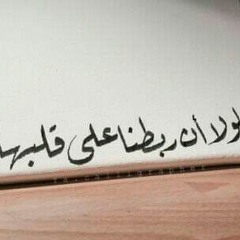 لولا أن ربطنا على قلبها